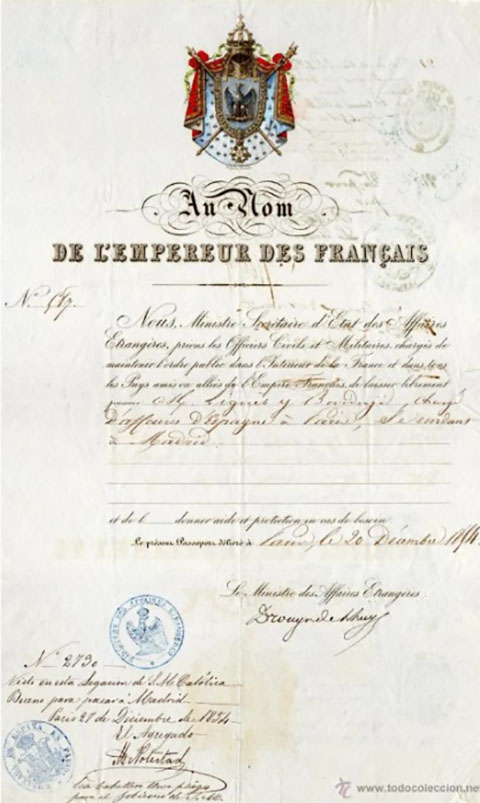 Au Nom
DE L'EMPEREUR DES FRANÇAIS
Nº
Nous, Ministre Secrétaire d'Etat des Affaires
Etrangères, prions les Officiers Civils et Militaires, chargés de
maintenir l'ordre public dans l'Intérieur de la France et dans tous
les Pays amis ou alliés de l'Empire Français, de laisser librement
passer M. y chargé
D'affaires d'Espagne à Paris, se rendant
à Madrid
et de l donner aide et protection en cas de besoin.
Le présent Passeport délivré à Paris, le 20 Décembre 1854.
Le Ministre des Affaires Etrangères.
Drouyn de Lhuys
MINISTERE DES AFFAIRES ETRANGERES
Nº 2730
Visto en esta Legacion de S. M. Católica
Bueno para pasar á Madrid
Paris 27 de Diciembre de 1854
El Agregado
para el Gobierno de S. M.
www.todocoleccion.net